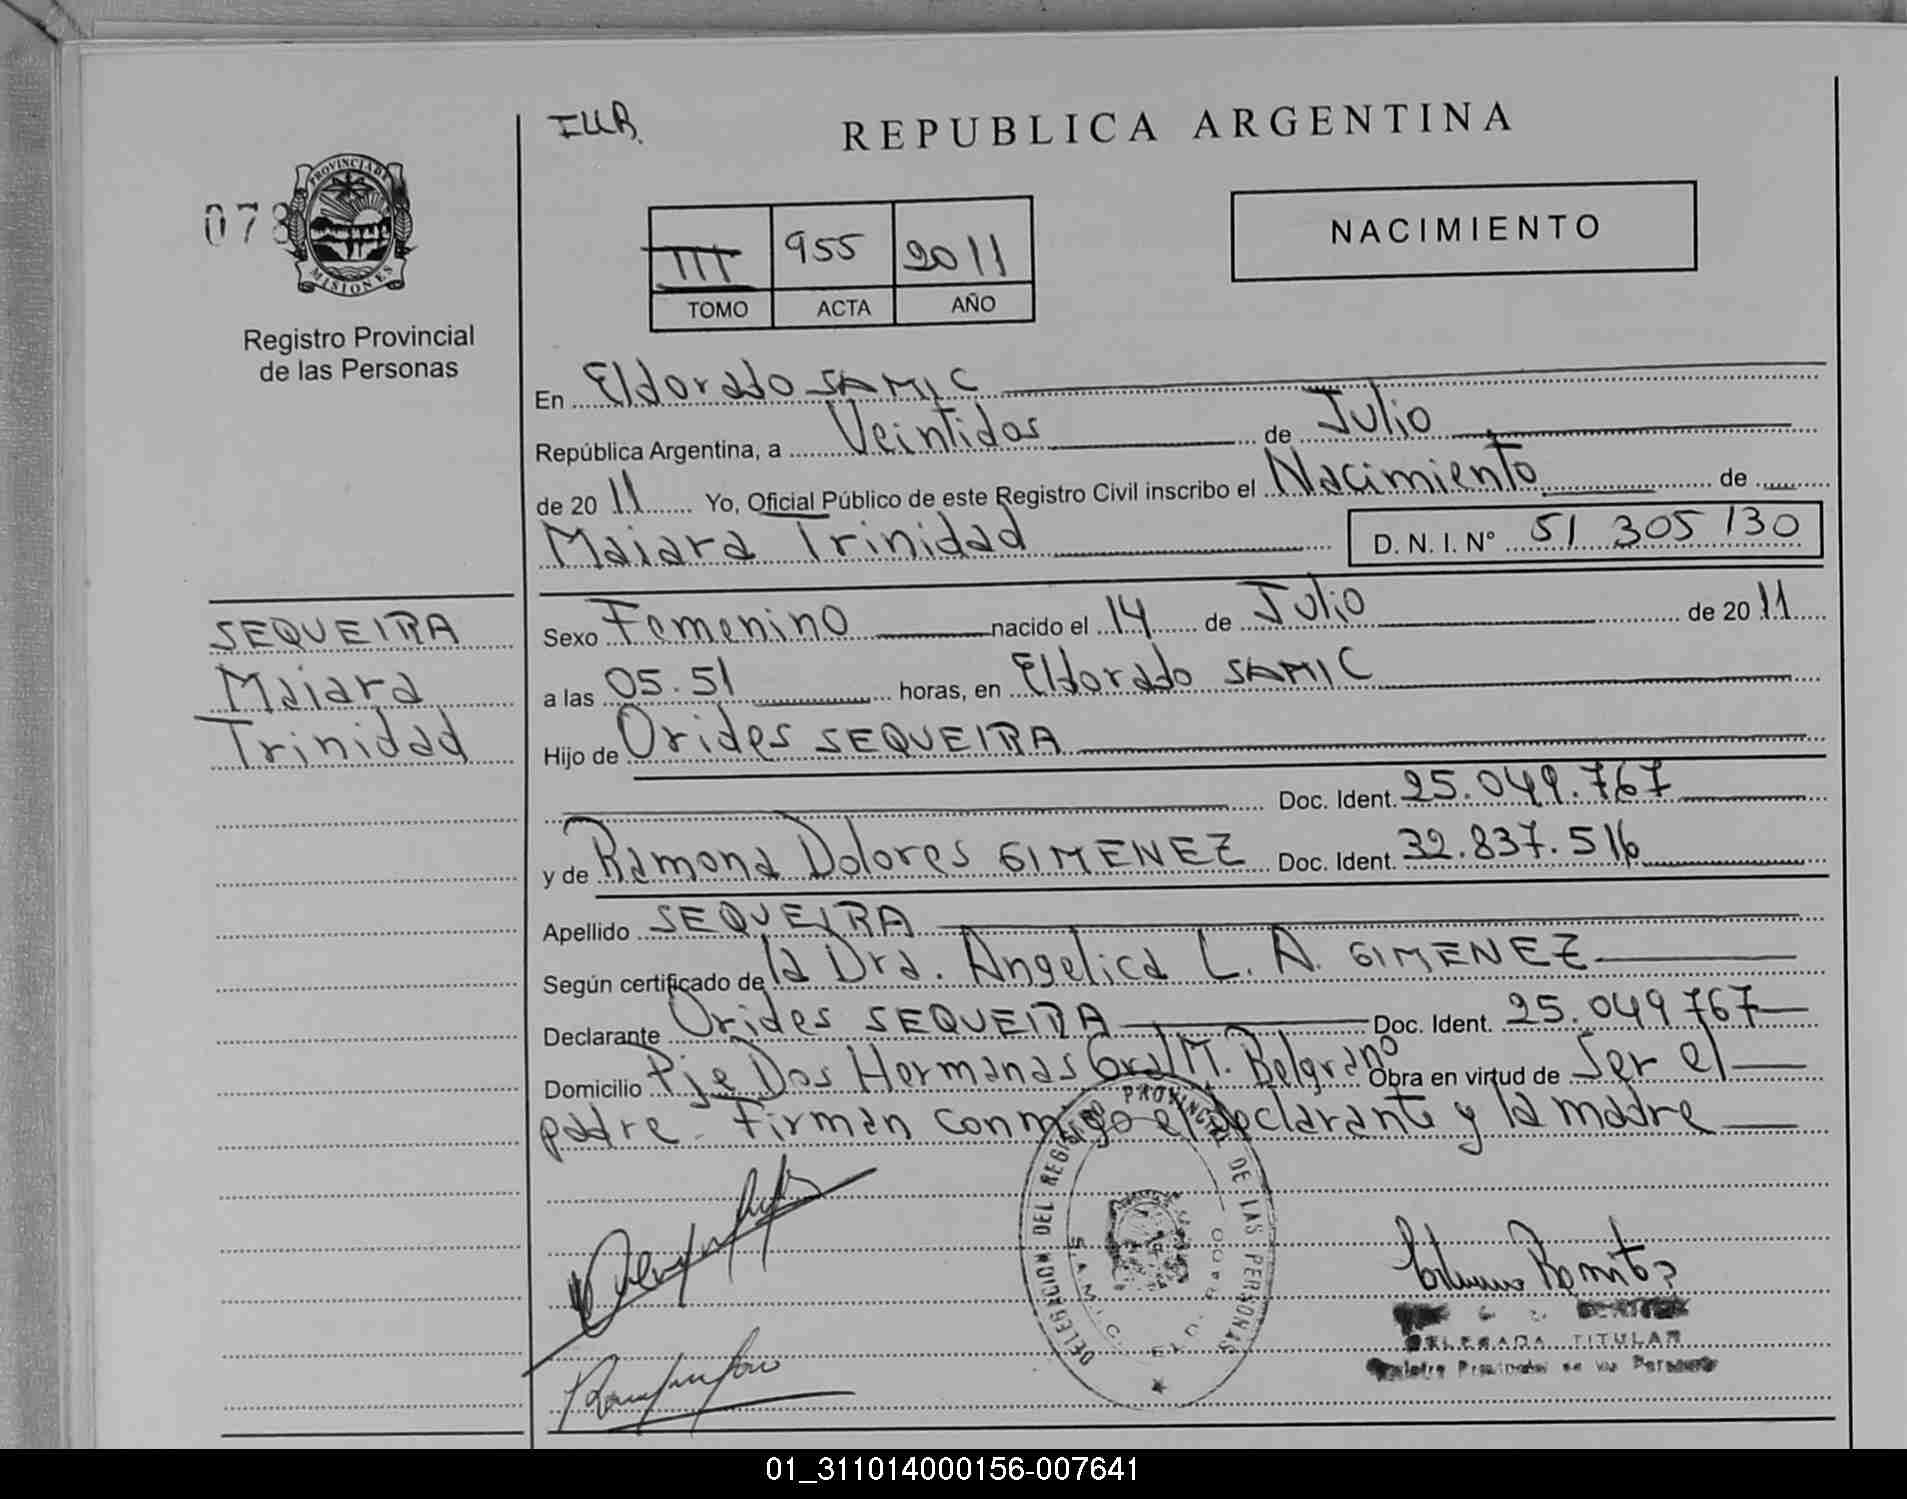 IUB.
REPUBLICA ARGENTINA
078
PROVINCIA DE
MISIONES
Registro Provincial
de las Personas
III 955 2011
TOMO ACTA AÑO
NACIMIENTO
En Eldorado SAMIC
República Argentina, a Veintidos de Julio
de 2011 Yo, Oficial Público de este Registro Civil inscribo el Nacimiento de
Maiara Trinidad D. N. I. Nº 51 305 130
SEQUEIRA
Maiara
Trinidad
Sexo Femenino nacido el 14 de Julio de 2011
a las 05.51 horas, en Eldorado SAMIC
Hijo de Orides SEQUEIRA
Doc. Ident. 25.049.767
y de Ramona Dolores GIMENEZ Doc. Ident. 32.837.516
Apellido SEQUEIRA
Según certificado de la Dra. Angelica L. A. GIMENEZ
Declarante Orides SEQUEIRA Doc. Ident. 25.049767
Domicilio Pje Dos Hermanas Gral M. Belgrano Obra en virtud de Ser el
padre - Firman conmigo el declarante y la madre
DELEGACION DEL REGISTRO PROVINCIAL DE LAS PERSONAS
S.A.M.I.C. ELDORADO
DELEGADA TITULAR
Registro Provincial de las Personas
01_311014000156-007641